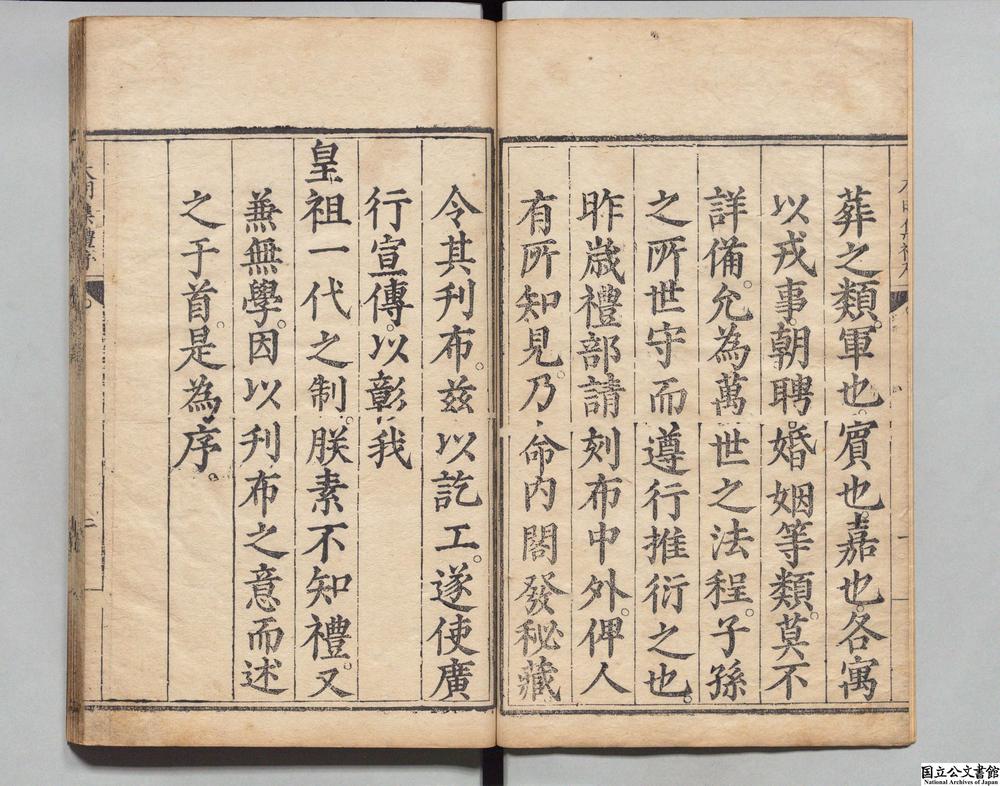 葬之類。軍也。賓也。嘉也。各寓
以戎事。朝聘。婚姻等類。莫不
詳備。允為萬世之法程。子孫
之所世守而遵行推衍之也。
昨歲禮部請刻布中外。俾人
有所知見。乃命內閣發秘藏
令其刊布。茲以訖工。遂使廣
行宣傳。以彰我
皇祖一代之制。朕素不知禮。又
無學。因以刊布之意而述
之于首。是為序。
大明集禮序
二
一
国立公文書館
National Archives of Japan